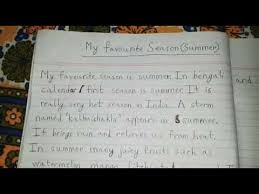 My favourite Season (Summer)
My favourite season is summer. In bengali
calendar first season is summer. It is
really very hot season in India. A storm
named "kalbaishakhi" appears in summer.
It brings rain and relieves us from heat.
In summer many juicy fruits such as
watermelon, mango
and